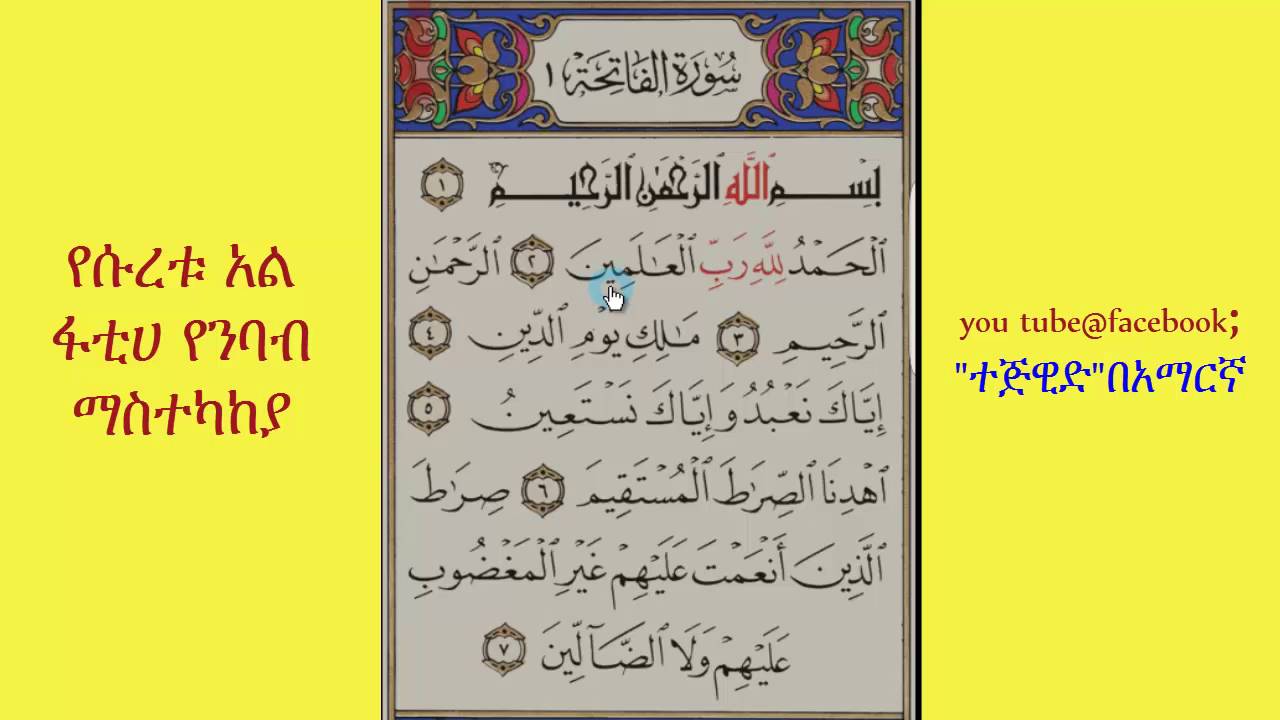 سُورَةُ الفَاتِحَةِ ١
بِسْمِ ٱللَّهِ ٱلرَّحْمَٰنِ ٱلرَّحِيمِ ١
ٱلْحَمْدُ لِلَّهِ رَبِّ ٱلْعَٰلَمِينَ ٢ ٱلرَّحْمَٰنِ
ٱلرَّحِيمِ ٣ مَٰلِكِ يَوْمِ ٱلدِّينِ ٤
إِيَّاكَ نَعْبُدُ وَإِيَّاكَ نَسْتَعِينُ ٥
ٱهْدِنَا ٱلصِّرَٰطَ ٱلْمُسْتَقِيمَ ٦ صِرَٰطَ
ٱلَّذِينَ أَنْعَمْتَ عَلَيْهِمْ غَيْرِ ٱلْمَغْضُوبِ
عَلَيْهِمْ وَلَا ٱلضَّآلِّينَ ٧
የሱረቱ አል
ፋቲሀ የንባብ
ማስተካከያ
you tube@facebook;
"ተጅዊድ"በአማርኛ